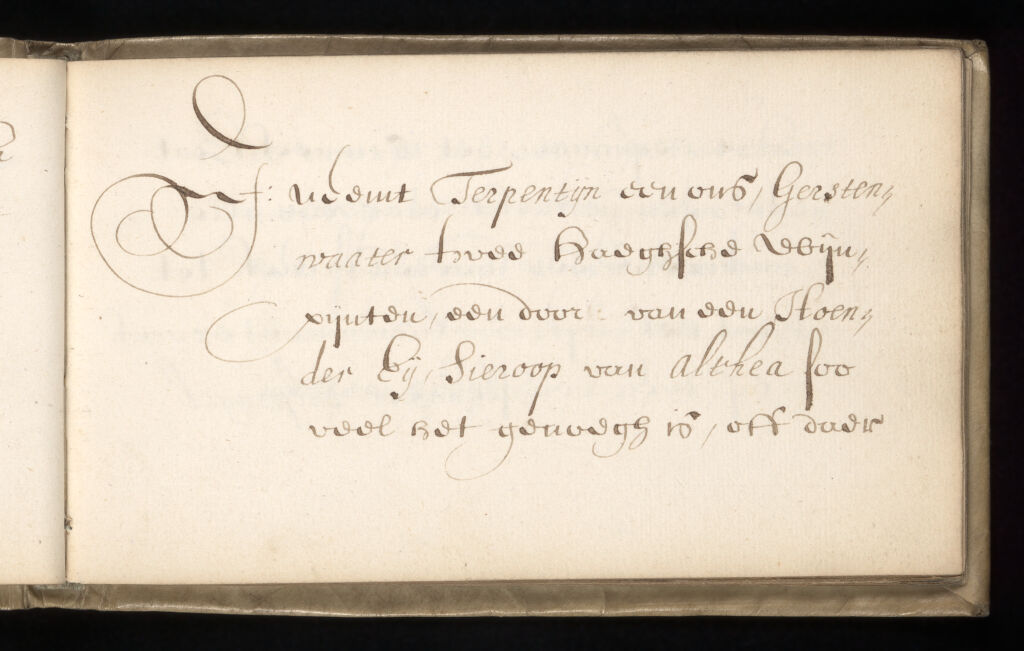 Neemt Terpentijn een ons, Gersten,,
waater twee Haeghsche Wijn,,
pijnten, een door: van een Hoen,,
der Eij, Sieroop van Althea soo
veel het genoegh is, off daer